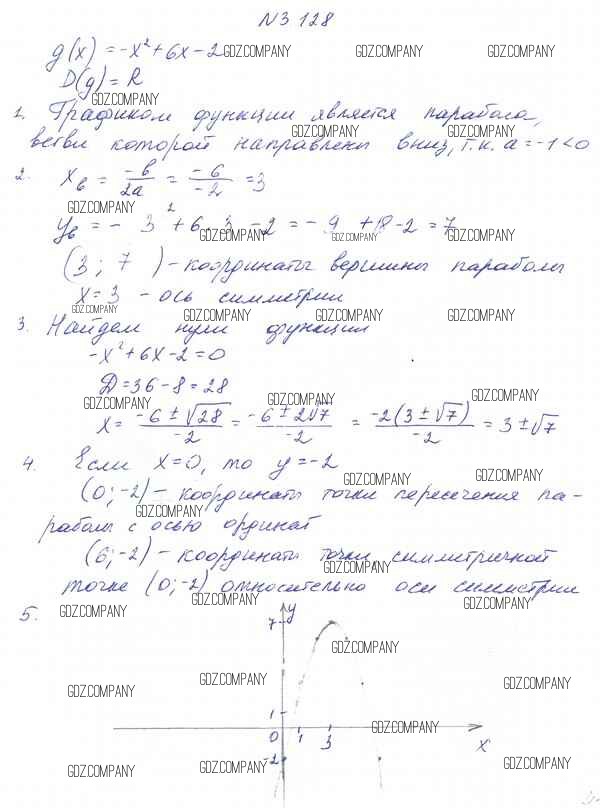 N3 128
g(x) = -x² + 6x - 2 GDZ.COMPANY GDZ.COMPANY GDZ.COMPANY
D(g) = R
GDZ.COMPANY
1. Графиком функции является парабола,
GDZ.COMPANY GDZ.COMPANY
ветви которой направлены вниз, т.к. a = -1 < 0
2. xв = -b/2a = -6/-2 = 3
GDZ.COMPANY
yв = -3² + 6·3 - 2 = -9 + 18 - 2 = 7
GDZ.COMPANY GDZ.COMPANY GDZ.COMPANY
(3; 7) - координаты вершины параболы
x = 3 - ось симметрии
GDZ.COMPANY GDZ.COMPANY GDZ.COMPANY GDZ.COMPANY
3. Найдем нули функции
-x² + 6x - 2 = 0
D = 36 - 8 = 28
GDZ.COMPANY GDZ.COMPANY GDZ.COMPANY
x = (-6 ± √28)/-2 = (-6 ± 2√7)/-2 = -2(3 ± √7)/-2 = 3 ± √7
4. Если x = 0, то y = -2
GDZ.COMPANY GDZ.COMPANY
(0; -2) - координаты точки пересечения па-
GDZ.COMPANY
раболы с осью ординат
(6; -2) - координаты точки, симметричной
GDZ.COMPANY
точке (0; -2) относительно оси симметрии
GDZ.COMPANY GDZ.COMPANY
5. GDZ.COMPANY
y
7
GDZ.COMPANY
GDZ.COMPANY GDZ.COMPANY GDZ.COMPANY
1
GDZ.COMPANY
0 1 3 x
-2
GDZ.COMPANY GDZ.COMPANY GDZ.COMPANY